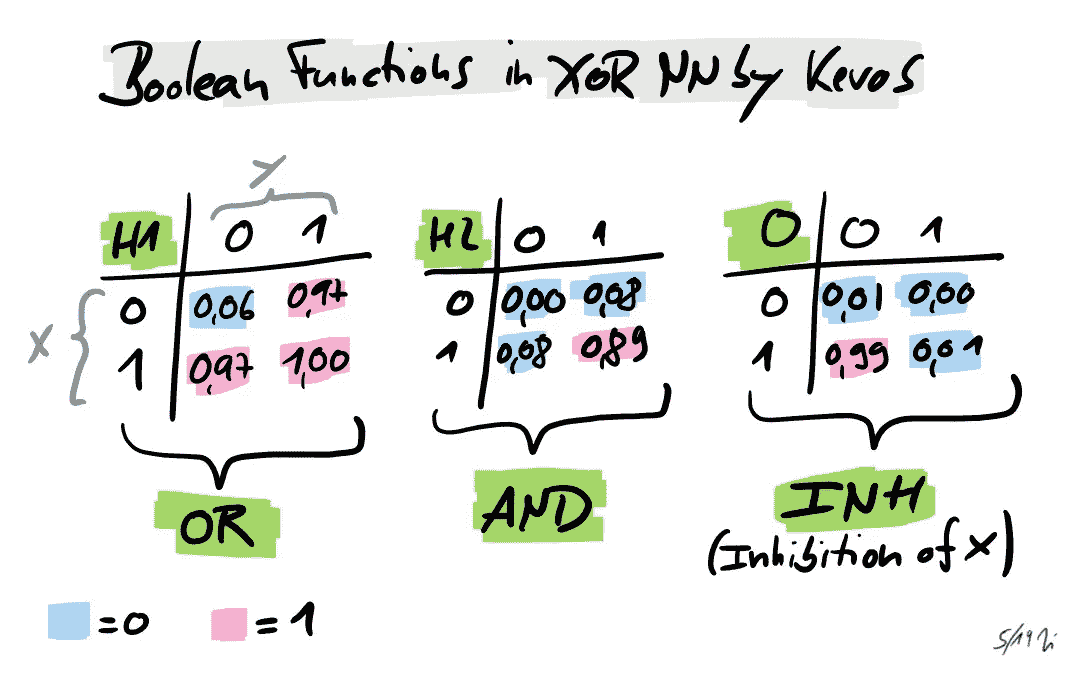 Boolean Functions in XOR NN by Kevos
Y
H1 0 1
0 0,06 0,97
1 0,97 1,00
X
OR
H2 0 1
0 0,00 0,08
1 0,08 0,89
AND
O 0 1
0 0,01 0,00
1 0,99 0,01
INH
(Inhibition of X)
=0 =1
5/19